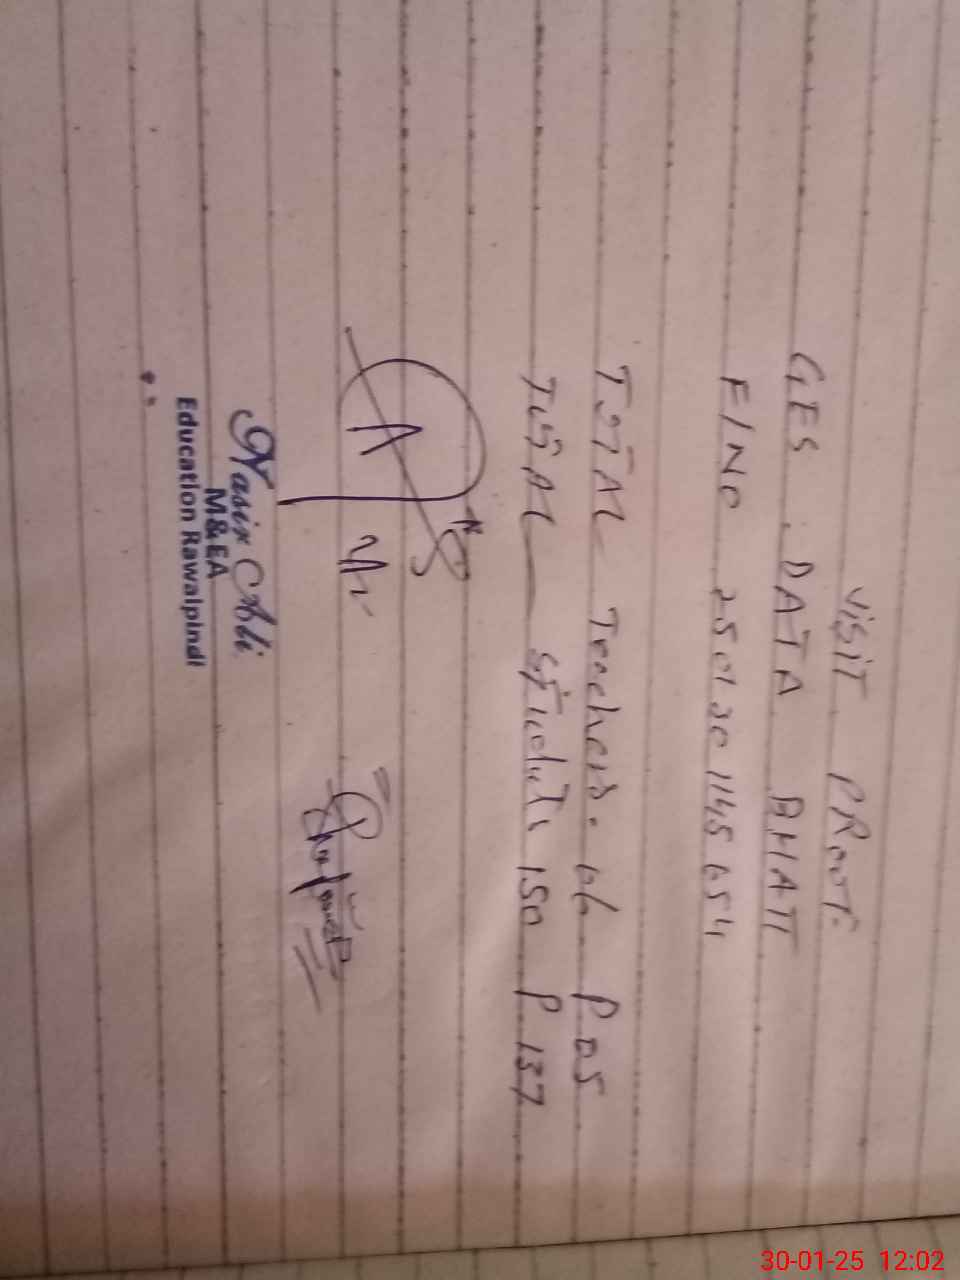 VISIT PROOF
GES. DATA BHATT
F/NO 2501301145654
TOTAL Teachers. 06 P.05
TOTAL students 150 P 137
Nasir Ali
M&EA
Education Rawalpindi
30-01-25 12:02